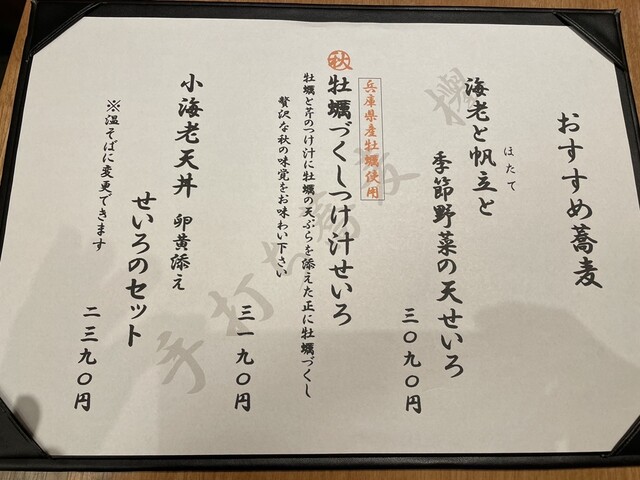 おすすめ蕎麦
海老と帆立と
ほたて
季節野菜の天せいろ
三〇九〇円
兵庫県産牡蠣使用
秋
牡蠣づくしつけ汁せいろ
牡蠣と芹のつけ汁に牡蠣の天ぷらを添えた正に牡蠣づくし
贅沢な秋の味覚をお味わい下さい
三一九〇円
小海老天丼 卵黄添え
せいろのセット
※温そばに変更できます
二三九〇円
手打ち蕎麦